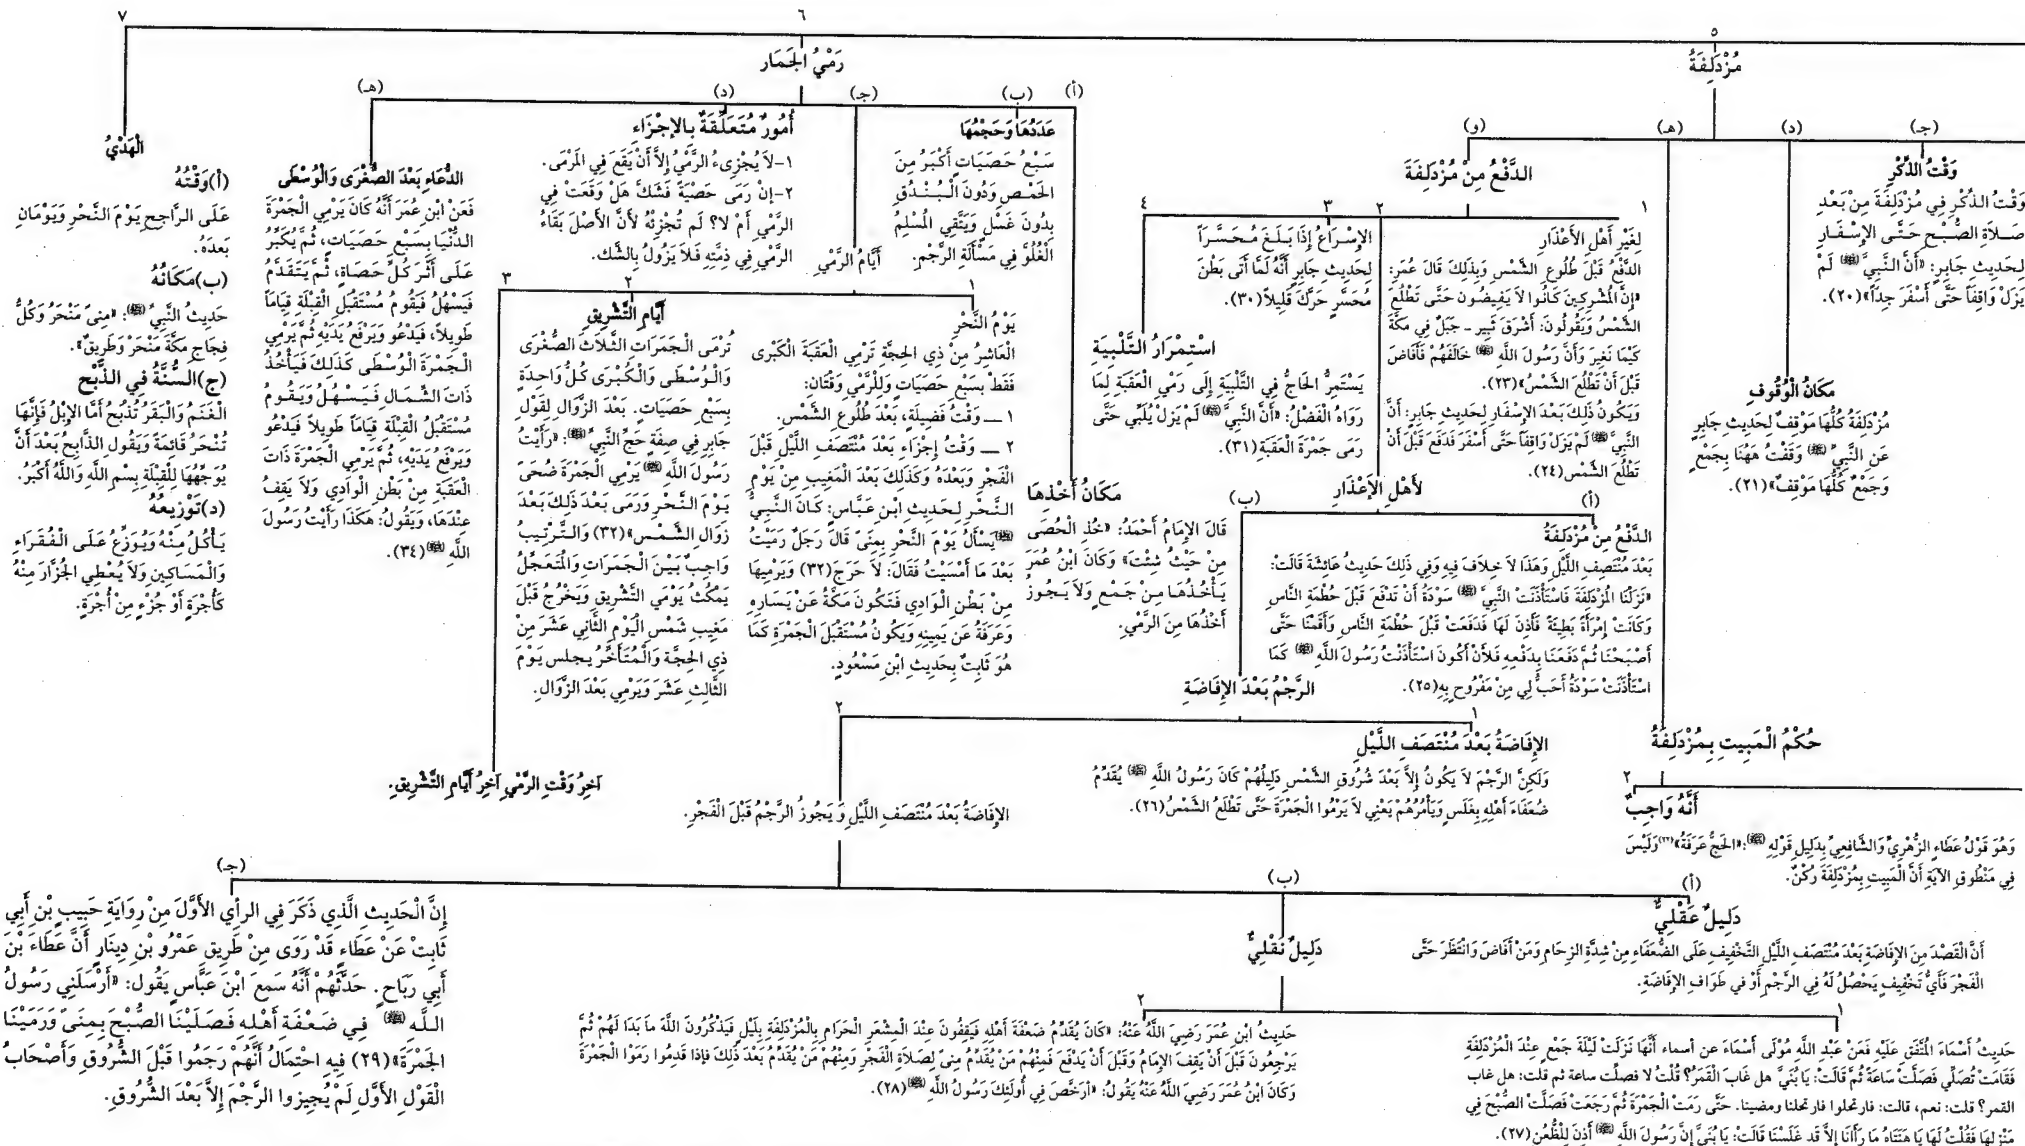 ٥
مُزْدَلِفَةُ
(جـ)
(د)
(هـ)
(و)
وَقْتُ الذِّكْرِ
وَقْتُ الذِّكْرِ فِي مُزْدَلِفَةَ مِنْ بَعْدِ
صَلاَةِ الصُّبْحِ حَتَّى الإِسْفَارِ
لِحَدِيثِ جَابِرٍ: «أَنَّ النَّبِيَّ ﷺ لَمْ
يَزَلْ وَاقِفاً حَتَّى أَسْفَرَ جِدّاً»(٢٠).
مَكَانُ الْوُقُوفِ
مُزْدَلِفَةُ كُلُّهَا مَوْقِفٌ لِحَدِيثِ جَابِرٍ
عَنِ النَّبِيِّ ﷺ وَقَفْتُ هَهُنَا بِجَمْعٍ
وَجَمْعٌ كُلُّهَا مَوْقِفٌ»(٢١).
حُكْمُ الْمَبِيتِ بِمُزْدَلِفَةُ
٢
أَنَّهُ وَاجِبٌ
وَهُوَ قَوْلُ عَطَاءِ الزُّهْرِيِّ وَالشَّافِعِيِّ بِدَلِيلِ قَوْلِهِ ﷺ: «الحَجُّ عَرَفَةُ»(٢٢) وَلَيْسَ
فِي مَنْطُوقِ الآيَةِ أَنَّ الْمَبِيتَ بِمُزْدَلِفَةَ رُكْنٌ.
الدَّفْعُ مِنْ مُزْدَلِفَةَ
١
٢
٣
٤
لِغَيْرِ أَهْلِ الأَعْذَارِ
الدَّفْعُ قَبْلَ طُلُوعِ الشَّمْسِ وَبِذَلِكَ قَالَ عُمَرِ:
«إِنَّ الْمُشْرِكِينَ كَانُوا لاَ يَفِيضُون حَتَّى تَطْلُعَ
الشَّمْسُ وَيَقُولُونَ: أَشْرَقَ ثَبِير ـ جَبَلٌ فِي مَكَّةَ
كَيْمَا نَغِيرَ وَأَنَّ رَسُولَ اللَّهِ ﷺ خَالَفَهُمْ فَأَفَاضَ
قَبْلَ أَنْ تَطْلُعَ الشَّمْسُ»(٢٣).
وَيَكُونُ ذَلِكَ بَعْدَ الإِسْفَارِ لِحَدِيثِ جَابِرٍ: أَنَّ
النَّبِيَّ ﷺ لَمْ يَزَلْ وَاقِفاً حَتَّى أَسْفَرَ فَدَفَعَ قَبْلَ أَنْ
تَطْلُعَ الشَّمْسِ(٢٤).
الإِسْرَاعُ إِذَا بَلَغَ مُحَسَّراً
لِحَدِيثِ جَابِرٍ أَنَّهُ لَمَّا أَتَى بَطْنَ
مُحَسَّرٍ حَرَّكَ قَلِيلاً(٣٠).
اسْتِمْرَارُ التَّلْبِيَةِ
يَسْتَمِرُّ الحَاجُّ فِي التَّلْبِيَةِ إِلَى رَمْيِ الْعَقَبَةِ لِمَا
رَوَاهُ الْفَضْلُ: «أَنَّ النَّبِيَّ ﷺ لَمْ يَزَلْ يُلَبِّي حَتَّى
رَمَى جَمْرَةَ الْعَقَبَةِ(٣١).
لأَهْلِ الأَعْذَارِ
(أ)
(ب)
الدَّفْعُ مِنْ مُزْدَلِفَةُ
بَعْدَ مُنْتَصِفِ اللَّيْلِ وَهَذَا لاَ خِلاَفَ فِيهِ وَفِي ذَلِكَ حَدِيثُ عَائِشَةَ قَالَتْ:
«نَزَلْنَا الْمُزْدَلِفَةَ فَاسْتَأْذَنَتْ النَّبِيَّ ﷺ سَوْدَةُ أَنْ تَدْفَعَ قَبْلَ حُطْمَةِ النَّاسِ
وَكَانَتْ إِمْرَأَةً بَطِيئَةً فَأَذِنَ لَهَا فَدَفَعَتْ قَبْلَ حُطْمَةِ النَّاسِ وَأَقَمْنَا حَتَّى
أَصْبَحْنَا ثُمَّ دَفَعْنَا بِدَفْعِهِ فَلأَنْ أَكُونَ اسْتَأْذَنْتُ رَسُولَ اللَّهِ ﷺ كَمَا
اسْتَأْذَنَتْ سَوْدَةُ أَحَبُّ لِي مِنْ مَفْرُوحٍ بِهِ(٢٥).
الرَّجْمُ بَعْدَ الإِفَاضَةِ
١
٢
الإِفَاضَةُ بَعْدَ مُنْتَصَفِ اللَّيْلِ
وَلَكِنَّ الرَّجْمَ لاَ يَكُونُ إِلاَّ بَعْدَ شُرُوقِ الشَّمْسِ دَلِيلُهُمْ كَانَ رَسُولُ اللَّهِ ﷺ يُقَدِّمُ
ضُعَفَاءَ أَهْلِهِ بِغَلَسٍ وَيَأْمُرُهُمْ يَعْنِي لاَ يَرْمُوا الْجَمْرَةَ حَتَّى تَطْلُعَ الشَّمْسُ(٢٦).
الإِفَاضَةُ بَعْدَ مُنْتَصَفِ اللَّيْلِ وَيَجُوزُ الرَّجْمُ قَبْلَ الْفَجْرِ.
(أ)
(ب)
(جـ)
دَلِيلٌ عَقْلِيٌّ
أَنَّ الْقَصْدَ مِنَ الإِفَاضَةِ بَعْدَ مُنْتَصَفِ اللَّيْلِ التَّخْفِيفِ عَلَى الضُّعَفَاءِ مِنْ شِدَّةِ الزِحَامِ وَمَنْ أَفَاضَ وَانْتَظَرَ حَتَّى
الْفَجْرِ فَأَيُّ تَخْفِيفٍ يَحْصُلُ لَهُ فِي الرَّجْمِ أَوْ فِي طَوَافِ الإِفَاضَةِ.
دَلِيلٌ نَقْلِيٌّ
١
٢
حَدِيثُ أَسْمَاءَ الْمُتَّفَقِ عَلَيْهِ فَعَنْ عَبْدِ اللَّهِ مَوْلَى أَسْمَاءَ عن أسماء أَنَّهَا نَزَلَتْ لَيْلَةَ جَمْعٍ عِنْدَ الْمُزْدَلِفَةِ
فَقَامَتْ تُصَلِّي فَصَلَّتْ سَاعَةً ثُمَّ قَالَتْ: يَا بُنَيَّ هل غَابَ الْقَمَرُ؟ قُلْتُ لا فصلَّت ساعة ثم قلت: هل غاب
القمر؟ قلت: نعم، قالت: فارتحلوا فارتحلنا ومضينا. حَتَّى رَمَتْ الْجَمْرَةَ ثُمَّ رَجَعَتْ فَصَلَّتْ الصُّبْحَ فِي
مَنْزِلِهَا فَقُلْتُ لَهَا يَا هَنَتَاهُ مَا رَأَانَا إِلاَّ قَد غَلَسْنَا قَالَتْ: يَا بُنَيَّ إِنَّ رَسُولَ اللَّهِ ﷺ أَذِنَ لِلْظُّعُنِ(٢٧).
حَدِيثُ ابْنِ عُمَرَ رَضِيَ اللَّهُ عَنْهُ: «كَانَ يُقَدِّمُ ضَعَفَةَ أَهْلِهِ فَيَقِفُونَ عِنْدَ الْمِشْعَرِ الْحَرَامِ بِالْمُزْدَلِفَةِ بِلَيْلٍ فَيَذْكُرُونَ اللَّهَ مَا بَدَا لَهُمْ ثُمَّ
يَرْجِعُونَ قَبْلَ أَنْ يَقِفَ الإِمَامُ وَقَبْلَ أَنْ يَدْفَعَ فَمِنْهُمْ مَنْ يُقَدِّمُ مِنىً لِصَلاَةِ الْفَجْرِ وَمِنْهُمْ مَنْ يُقَدِّمُ بَعْدَ ذَلِكَ فَإِذا قَدِمُوا رَمَوْا الْجَمْرَةَ
وَكَانَ ابْنُ عُمَرَ رَضِيَ اللَّهُ عَنْهُ يَقُولُ: «أَرْخَصَ فِي أُولَئِكَ رَسُولُ اللَّهِ ﷺ(٢٨).
إِنَّ الْحَدِيثَ الَّذِي ذَكَرَ فِي الرأي الأَوَّلَ مِنْ رِوَايَةِ حَبِيبِ بْنِ أَبِي
ثَابِتْ عَنْ عَطَاءٍ قَدْ رَوَى مِنْ طَرِيقِ عَمْرُو بْنِ دِينَارٍ أَنَّ عَطَاءَ بْنَ
أَبِي رَبَاحٍ. حَدَّثَهُمْ أَنَّهُ سَمِعَ ابْنَ عَبَّاسٍ يَقُول: «أَرْسَلَنِي رَسُولُ
اللَّهِ ﷺ فِي ضَعْفَةِ أَهْلِهِ فَصَلَّيْنَا الصُّبْحَ بِمِنىً وَرَمَيْنَا
الجَمْرَةَ»(٢٩) فِيهِ احْتِمَالُ أَنَّهُمْ رَجَمُوا قَبْلَ الشُّرُوقِ وَأَصْحَابُ
الْقَوْلِ الأَوَّلِ لَمْ يُجِيزُوا الرَّجْمَ إِلاَّ بَعْدَ الشُّرُوقِ.
٦
رَمْيُ الجَمَارِ
(أ)
(ب)
(جـ)
(د)
(هـ)
مَكَانُ أَخْذِهَا
قَالَ الإِمَامُ أَحْمَدُ: «خُذِ الْحُصَى
مِنْ حَيْثُ شِئْتَ» وَكَانَ ابْنُ عُمَرَ
يَأْخُذُهَا مِنْ جَمْعٍ وَلاَ يَجُوزُ
أَخْذُهَا مِنَ الرَّمْيِ.
عَدَدُهَا وَحَجْمُهَا
سَبْعُ حَصَيَاتٍ أَكْبَرُ مِنَ
الحَمْصِ وَدُونَ الْبُنْدُقِ
بِدُونَ غَسْلٍ وَيَتَّقِي الْمُسْلِمُ
الْغُلُوَّ فِي مَسْأَلَةِ الرَّجْمِ.
أَيَّامُ الرَّمْيِ
١
٢
٣
يَوْمُ النَّحْرِ
الْعَاشِرُ مِنْ ذِي الحِجَّةِ تَرْمِي الْعَقَبَةَ الْكُبْرَى
فَقَطْ بِسَبْعِ حَصَيَاتٍ وَلِلْرَّمْيِ وَقْتَانِ:
١ ــ وَقْتُ فَضِيلَةٍ، بَعْدَ طُلُوعِ الشَّمْسِ.
٢ ــ وَقْتُ إِجْزَاءٍ بَعْدَ مُنْتَصَفِ اللَّيْلِ قَبْلَ
الْفَجْرِ وَبَعْدَهُ وَكَذَلِكَ بَعْدَ الْمَغِيبِ مِنْ يَوْمِ
النَّحْرِ لِحَدِيثِ ابْنِ عَبَّاسٍ: كَانَ النَّبِيُّ
ﷺ يَسْأَلُ يَوْمَ النَّحْرِ بِمِنَىً قَالَ رَجُلٌ رَمَيْتُ
بَعْدَ مَا أَمْسَيْتُ فَقَالَ: لاَ حَرَجَ(٣٢) وَيَرْمِيهَا
مِنْ بَطْنِ الْوَادِي فَتَكُونَ مَكَّةُ عَنْ يَسَارِهِ
وَعَرَفَةُ عَنْ يَمِينِهِ وَيَكُونُ مُسْتَقْبِلَ الْجَمْرَةِ كَمَا
هُوَ ثَابِتٌ بِحَدِيثِ ابْنِ مَسْعُودٍ.
أَيَّامِ التَّشْرِيقِ
تُرْمَى الْجَمَرَاتِ الثَّلاَثِ الصُّغْرَى
وَالْوُسْطَى وَالْكُبْرَى كُلُّ وَاحِدَةٍ
بِسَبْعِ حَصَيَاتٍ. بَعْدَ الزَّوَالِ لِقَوْلِ
جَابِرٍ فِي صِفَةِ حَجِّ النَّبِيِّ ﷺ: «رَأَيْتُ
رَسُولَ اللَّهِ ﷺ يَرْمِي الْجَمْرَةَ ضُحَى
يَوْمَ النَّحْرِ وَرَمَى بَعْدَ ذَلِكَ بَعْدَ
زَوَالِ الشَّمْسِ»(٣٢) وَالتَّرْتِيبُ
وَاجِبٌ بَيْنَ الْجَمَرَاتِ وَالْمُتَعَجِّلُ
يَمْكُثُ يَوْمَي التَّشْرِيقِ وَيَخْرُجُ قَبْلَ
مَغِيبِ شَمْسِ الْيَوْمِ الثَّانِي عَشَرَ مِنْ
ذِي الحِجَّةِ وَالْمُتَأَخِّرُ يجلس يَوْمَ
الثَّالِثِ عَشَرَ وَيَرْمِي بَعْدَ الزَّوَالِ.
آخِرُ وَقْتِ الرَّمْيِ آخِرُ أَيَّامِ التَّشْرِيقِ.
أُمُورٌ مُتَعَلِّقَةٌ بِالإِجْزَاءِ
١-لاَ يُجْزِىءُ الرَّمْيُ إِلاَّ أَنْ يَقَعَ فِي الْمَرْمَى.
٢-إِنْ رَمَى حَصْيَةً فَشَكَّ هَلْ وَقَعَتْ فِي
الرَّمْيِ أَمْ لاَ؟ لَم تُجْزِئْهُ لأَنَّ الأَصْلَ بَقَاءُ
الرَّمْيِ فِي ذِمَّتِهِ فَلاَ يَزُولُ بِالشَّك.
الدُّعَاءِ بَعْدَ الصُّغْرَى وَالْوُسْطَى
فَعَنْ ابْنِ عُمَرَ أَنَّهُ كَانَ يَرْمِي الْجَمْرَةَ
الدُّنْيَا بِسَبْعِ حَصَيَات، ثُمَّ يُكَبِّرُ
عَلَى أَثَرَ كُلِّ حَصَاةٍ، ثُمَّ يَتَقَدَّمُ
فَيَسْهُلُ فَيَقُومُ مُسْتَقْبِلَ الْقِبْلَةِ قِيَاماً
طَوِيلاً، فَيَدْعُو وَيَرْفَعُ يَدَيْهِ ثُمَّ يَرْمِي
الْجَمْرَةَ الْوُسْطَى كَذَلِكَ فَيَأْخُذُ
ذَاتَ الشَّمَالِ فَيَسْهُلُ وَيَقُومُ
مُسْتَقْبِلُ الْقِبْلَةِ قِيَاماً طَوِيلاً فَيَدْعُو
وَيَرْفَعُ يَدَيْهِ، ثُمَّ يَرْمِي الْجَمْرَةَ ذَاتَ
الْعَقَبَةِ مِنْ بَطْنِ الْوَادِي وَلاَ يَقِفُ
عِنْدَهَا، وَيَقُولُ: هَكَذَا رَأَيْتُ رَسُولَ
اللَّهِ ﷺ(٣٤).
٧
الْهَدْيُ
(أ)وَقْتُهُ
عَلَى الرَّاجِحِ يَوْمَ النَّحْرِ وَيَوْمَانِ
بَعدَهُ.
(ب)مَكَانُهُ
حَدِيثُ النَّبِيِّ ﷺ: «مِنىً مَنْحَرُ وَكُلُّ
فِجَاجِ مَكَّةَ مَنْحَرْ وَطَرِيقٌ».
(ج)السُّنَّةُ فِي الذَّبْحِ
الْغَنَمُ وَالْبَقَرُ تُذْبَحُ أَمَّا الإِبْلُ فَإِنَّهَا
تُنْحَرُ قَائِمَةً وَيَقُولُ الذَّابِحُ بَعْدَ أَنَّ
يُوَجِّهُهَا لِلْقِبْلَةِ بِسْمِ اللَّهِ وَاللَّهُ أَكْبَرُ.
(د)تَوْزِيعُهُ
يَأْكُلُ مِنْهُ وَيُوَزِّعُ عَلَى الْفُقَرَاءِ
وَالْمَسَاكِينِ وَلاَ يُعْطِي الجُزَّارَ مِنْهُ
كَأُجْرَةٍ أَوْ جُزْءٍ مِنْ أُجْرَةٍ.